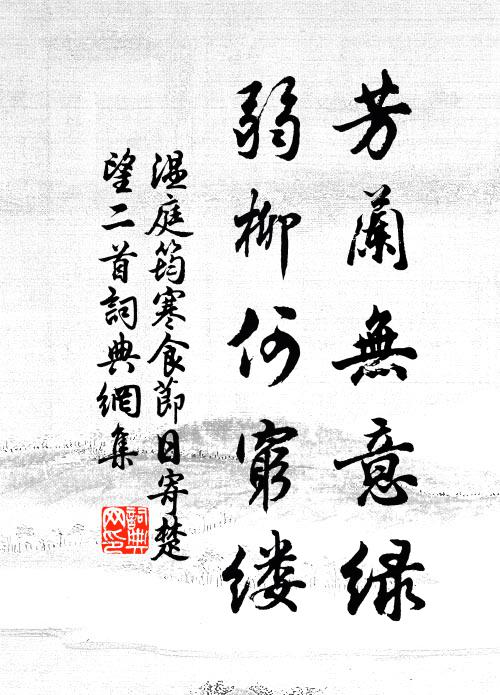 芳蘭無意綠
弱柳何窮縷
溫庭筠寒食節日寄楚
望二首詞典網集
詞典
网印